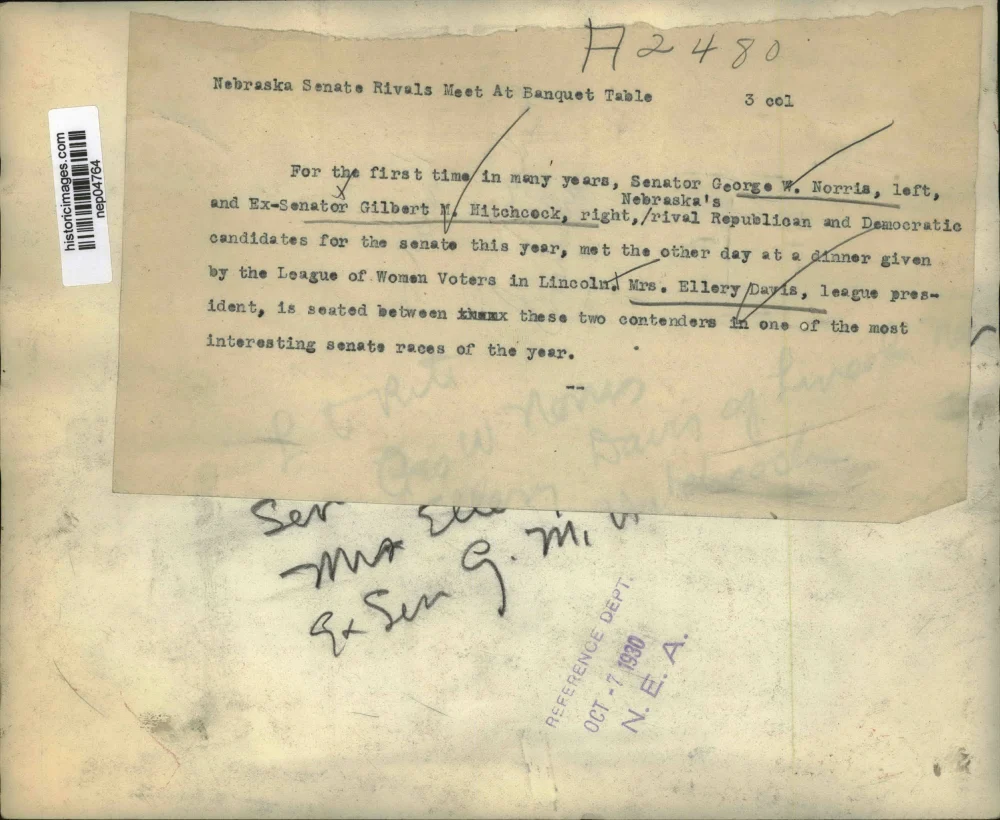 A2480
Nebraska Senate Rivals Meet At Banquet Table 3 col
For the first time in many years, Senator George W. Norris, left,
Nebraska's
and Ex-Senator Gilbert M. Hitchcock, right, /rival Republican and Democratic
candidates for the senate this year, met the other day at a dinner given
by the League of Women Voters in Lincoln. Mrs. Ellery Davis, league pres-
ident, is seated between these two contenders in one of the most
interesting senate races of the year.
--
historicimages.com
nep04764
Geo W Norris
Davis of
Sen
Mrs Elle
Ex Sen G. M.
REFERENCE DEPT.
OCT - 7 1930
N. E. A.